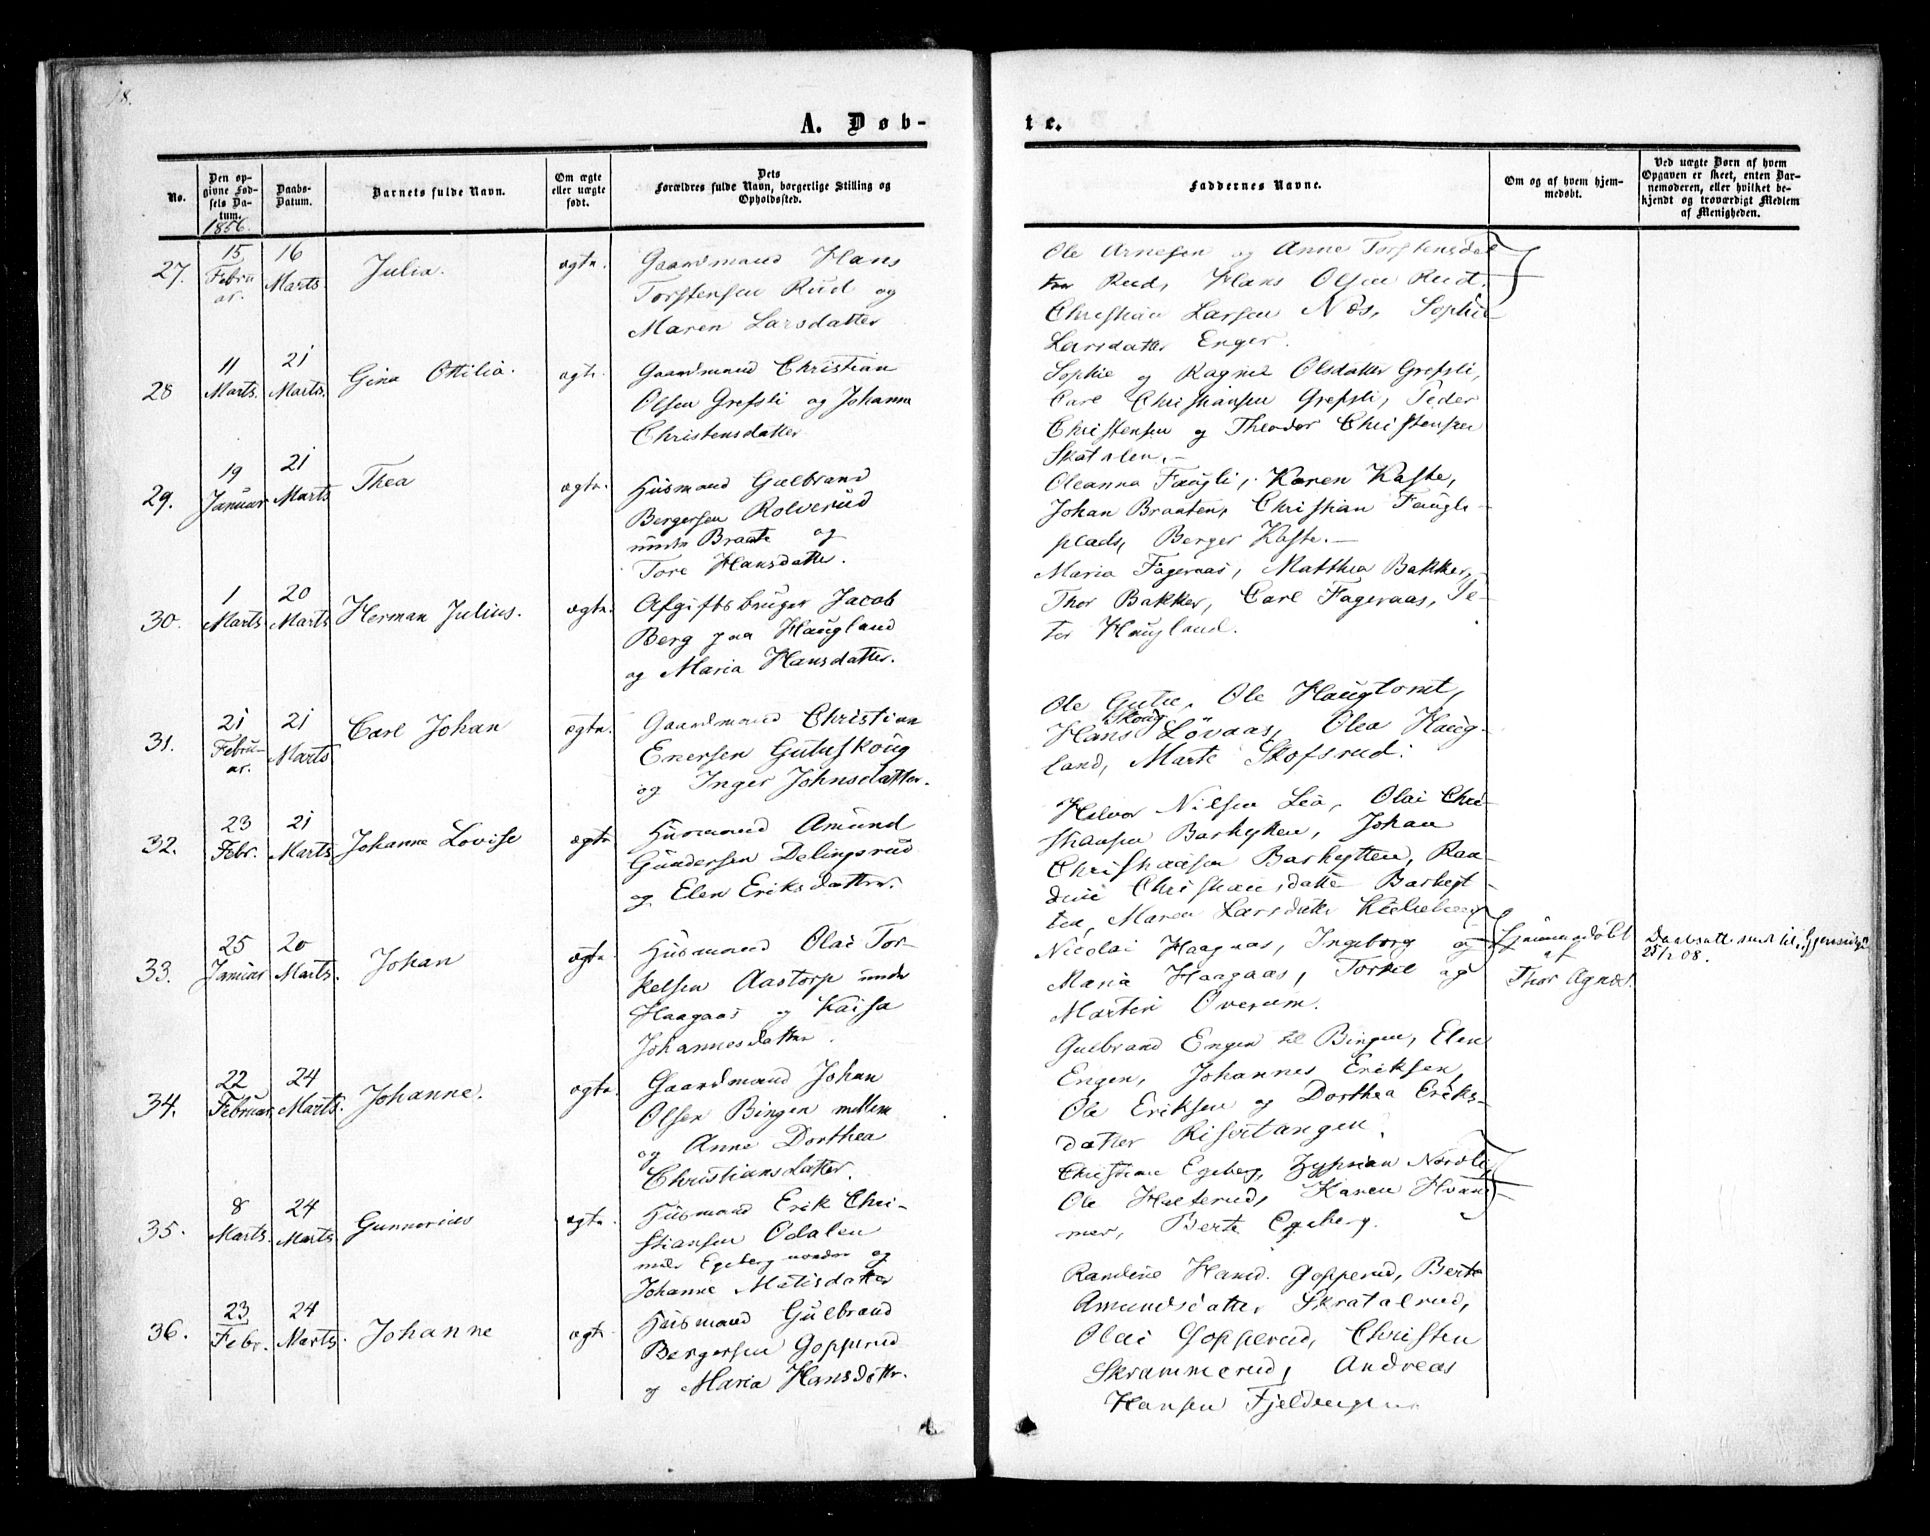 18.
A. Døb-
te.
No.
Den op-
givne Fød-
sels Da-
tum.
1856.
Daabs-
Datum.
Barnets fulde Navn.
Om ægte
eller uægte
født.
Dets
Forældres fulde Navn, borgerlige Stilling og
Opholdssted.
Faddernes Navne.
Om og af hvem hjem-
medøbt.
Ved uægte Børn af hvem
Opgaven er skeet, enten Bar-
nemoderen, eller hvilket be-
kjendt og troværdigt Medlem
af Menigheden.
27.
15
Febru
ar.
16
Marts.
Julia.
ægte.
Gaardmand Hans
Torstensen Rud og
Maren Larsdatter
Ole Arnesen og Anne Torstensdat
ter Rud, Hans Olsen Rud,
Christian Larsen Næs, Sophie
Larsdatter Enger.
28
11
Marts.
21
Marts.
Gina Otilia.
ægte.
Gaardmand Christian
Olsen Grefsli og Johanne
Christensdatter
Sophie og Ragnil Olsdatter Grefsli,
Carl Christiansen Grefsli, Peder
Christensen og Theodor Christensen
Skatalen.-
29.
19
Januar
21
Marts
Thea
ægte.
Huusmand Gulbrand
Bergersen Rolverud
under Braate og
Tore Hansdatter.
Oleanna Faugli, Karen Kaste,
Johan Braaten, Christian Faugli-
plads, Berger Kaste.-
30.
1
Marts
20
Marts
Herman Julius.
ægte.
Afgiftsbruger Jacob
Berg paa Haugland
og Maria Hansdatter.
Maria Fageraas, Matthea Bakker,
Thor Bakker, Carl Fageraas, Pe-
ter Haugland.
31.
21
Febru-
ar.
21
Marts
Carl Johan
ægte.
Gaardmand Christian
Enersen Guluskoug
og Inger Johnsdatter.
Ole Gulu, Ole Haugtomt,
Skoug
Hans Løvaas, Olea Haug-
land, Marte Skofsrud.
32.
23
Febr.
21
Marts
Johanne Lovise
ægte
Huusmand Amund
Gundersen Delingsrud
og Elen Eriksdatter.
Halvor Nilsen Lia, Olai Chri-
stiansen Barhytten, Johan
Christiansen Barhytten, Ran-
dine Christiansdatter Barhyt-
ten, Maren Larsdatter
33.
25
Januar
20
Marts.
Johan
ægte.
Huusmand Olai Tor-
kelsen Aastorp under
Haagaas og Kaisa
Johannesdatter.
Nicolai Haagaas, Ingeborg og
Maria Haagaas, Torkel og
Martin Overum.
Hjemmedøbt
af
Thor Agnæs.
Daabsatt. sendt til
25/2 08.
34.
22
Februar.
24
Marts.
Johanne.
ægte.
Gaardmand Johan
Olsen Bingen mellem
og Anne Dorthea
Christiansdatter.
Gulbrand Engen til Bingen, Elen
Engen, Johannes Eriksen,
Ole Eriksen og Dorthea Eriks-
datter Risortangen.
35.
8
Marts.
24
Marts.
Gunnerius
ægte.
Huusmand Erik Chri-
stiansen Odalen
under Egeberg nordre og
Johanne Matisdatter
Christiane Egeberg, Zyprian Nordli,
Ole Hulterud, Karen Ham-
mer, Berte Egeberg.
36.
23
Febr.
24
Marts.
Johanne
ægte
Huusmand Gulbrand
Bergersen Gopperud
og Maria Hansdatter.
Randine Hansd. Gopperud, Berte
Amundsdatter Skratalrud,
Olai Gopperud, Christen
Skrammerud, Andreas
Hansen Fjeldengen.